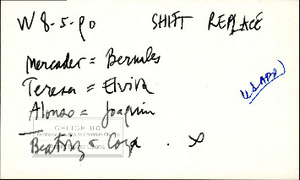 W 8-5-90 SHIFT REPLACE
Mercader = Bernales
Teresa = Elvira
Alonso = Joaquin
Beatriz = Cora . X